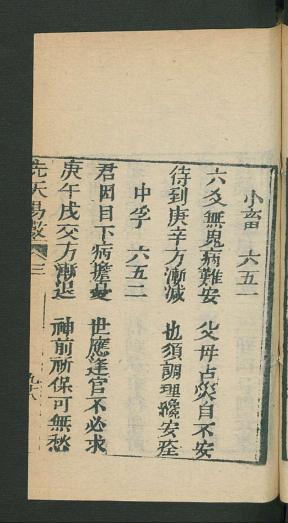 小畜　六五一
六爻無鬼病難安　父母占災自不安
待到庚辛方漸減　也須調理纔安痊
中孚　六五二
君因目下病擔憂　世應逢官不必求
庚午戌交方漸退　神前祈保可無愁
先天易數　卷三　九十八